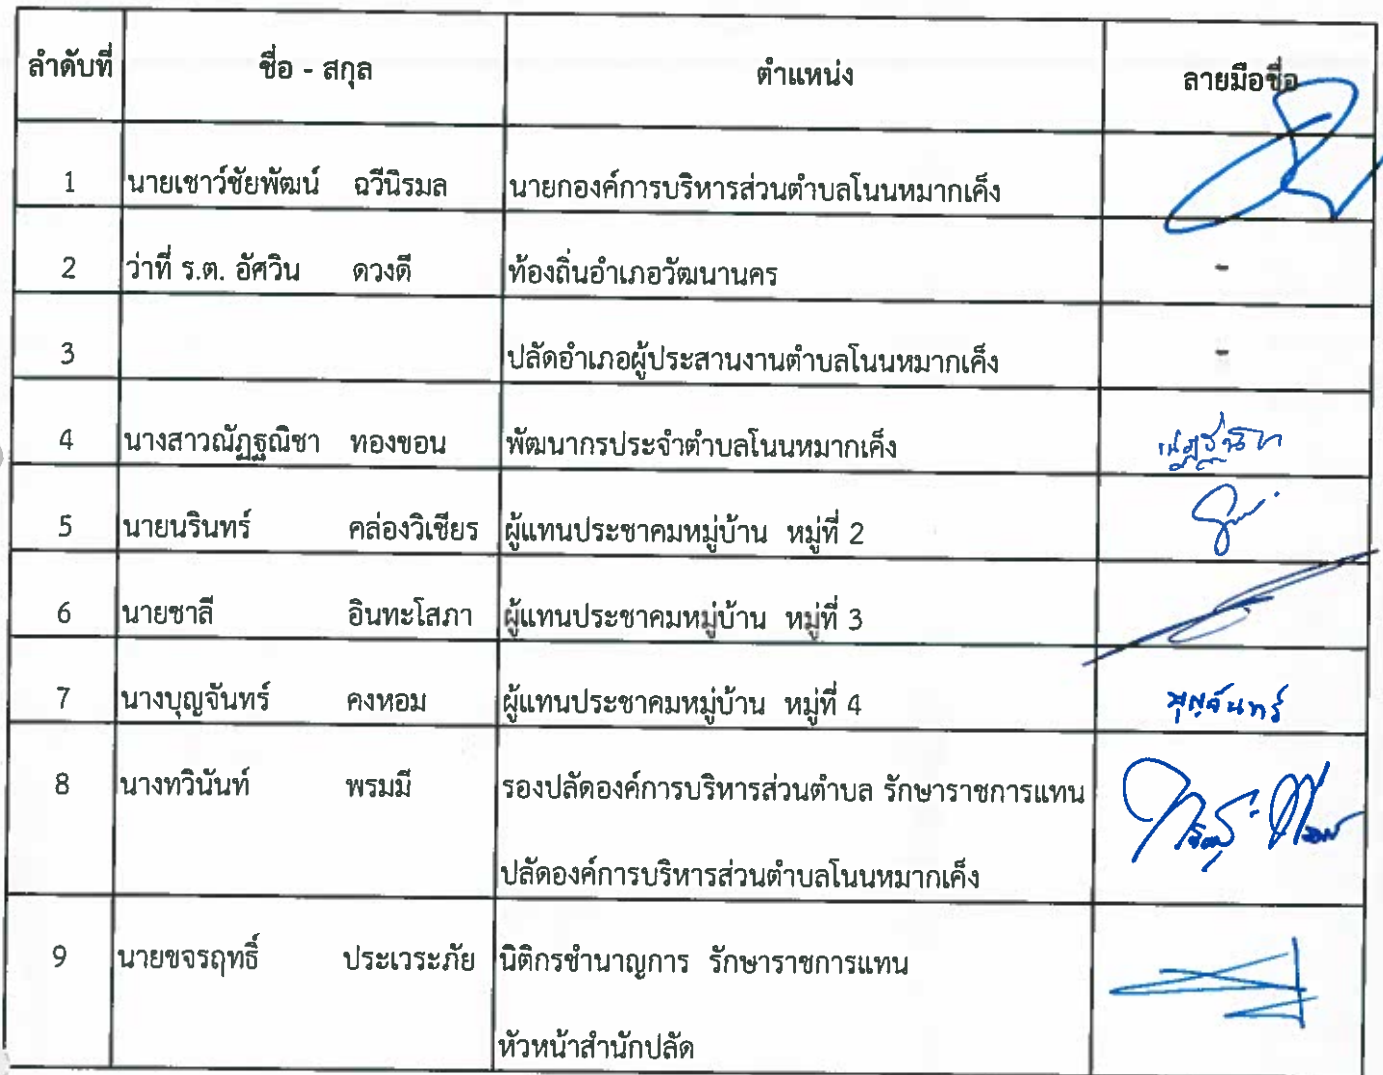 ลำดับที่ ชื่อ - สกุล ตำแหน่ง ลายมือชื่อ
1 นายเชาว์ชัยพัฒน์ ฉวีนิรมล นายกองค์การบริหารส่วนตำบลโนนหมากเค็ง
2 ว่าที่ ร.ต. อัศวิน ดวงดี ท้องถิ่นอำเภอวัฒนานคร -
3 ปลัดอำเภอผู้ประสานงานตำบลโนนหมากเค็ง -
4 นางสาวณัฏฐณิชา ทองขอน พัฒนากรประจำตำบลโนนหมากเค็ง
5 นายนรินทร์ คล่องวิเชียร ผู้แทนประชาคมหมู่บ้าน หมู่ที่ 2
6 นายชาลี อินทะโสภา ผู้แทนประชาคมหมู่บ้าน หมู่ที่ 3
7 นางบุญจันทร์ คงหอม ผู้แทนประชาคมหมู่บ้าน หมู่ที่ 4 บุญจันทร์
8 นางทวินันท์ พรมมี รองปลัดองค์การบริหารส่วนตำบล รักษาราชการแทน
ปลัดองค์การบริหารส่วนตำบลโนนหมากเค็ง
9 นายขจรฤทธิ์ ประเวระภัย นิติกรชำนาญการ รักษาราชการแทน
หัวหน้าสำนักปลัด